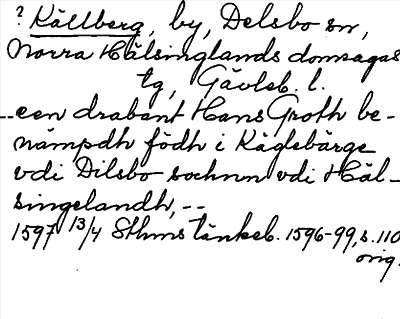 ? Källberg, by, Delsbo sn,
Norra Hälsinglands domsagas
tg, Gävleb. l.
--een drabant Hans Groth be-
nämpdh födh i Käglebärge
vdi Dilsbo sochnn vdi Häl-
singelandh, --
1597 13/4 Sthms tänkeb. 1596-99, s. 110
orig.